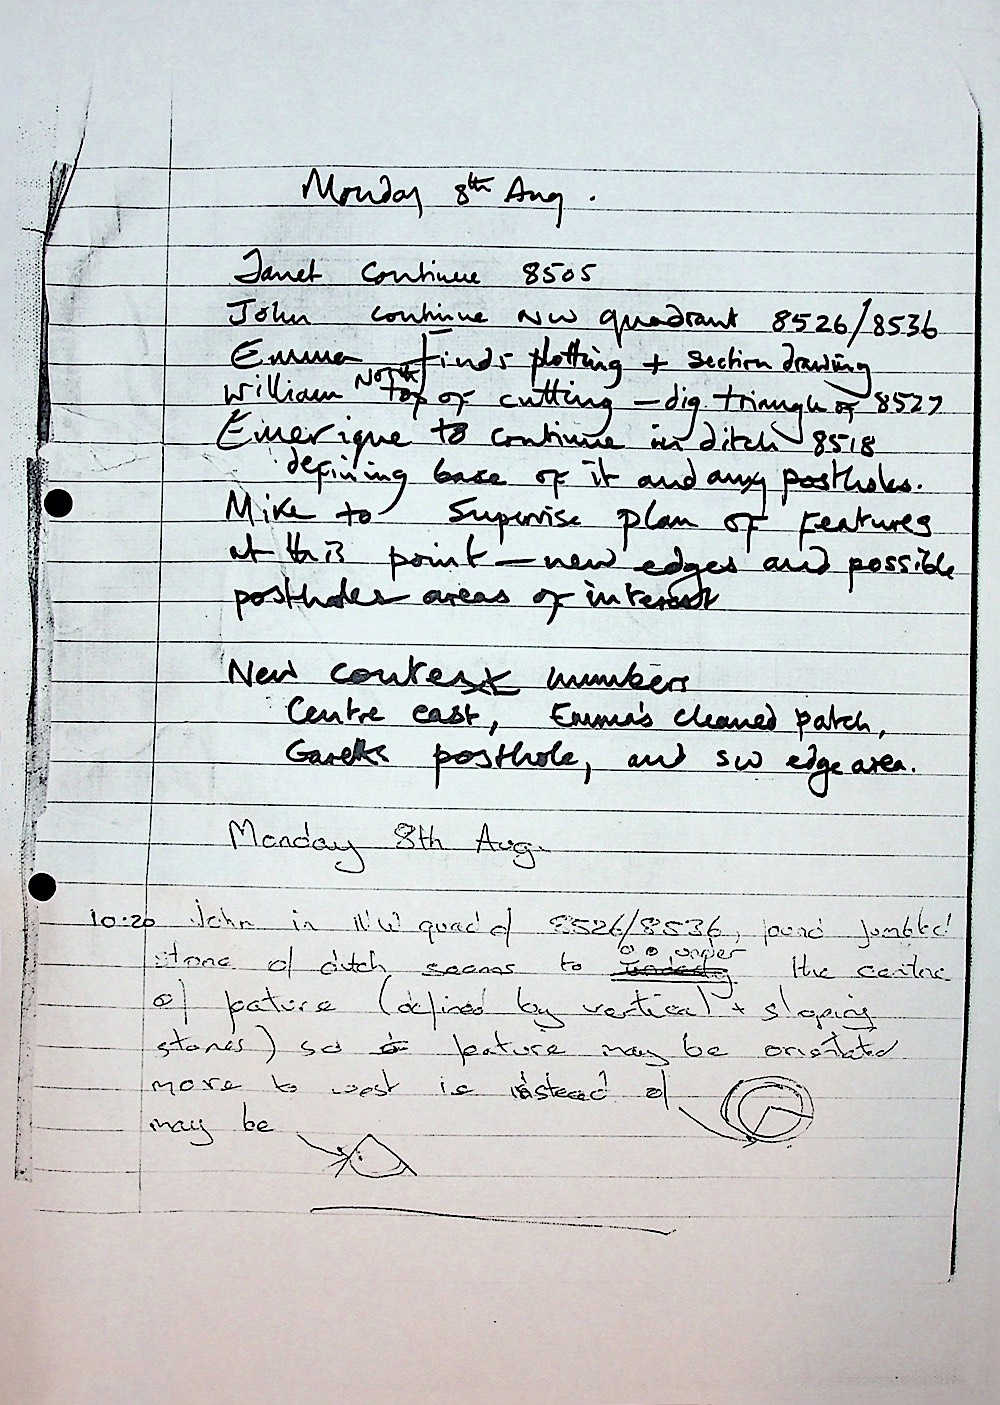 Monday 8th Aug.
Janet continue 8505
John continue NW quadrant 8526/8536
Emma finds plotting + section drawing
William North top of cutting – dig triangle of 8527
Emerique to continue in ditch 8518
defining base of it and any postholes.
Mike to supervise plan of features
at this point – new edges and possible
postholes areas of interest
New context numbers
Centre east, Emma's cleaned patch,
Gareths posthole, and SW edge area.
Monday 8th Aug.
10:20 John in NW quad of 8526/8536, found jumbled
stone of ditch seems to underly go under the centre
of feature (defined by vertical + sloping
stones) so feature may be orientated
more to west ie instead of
may be